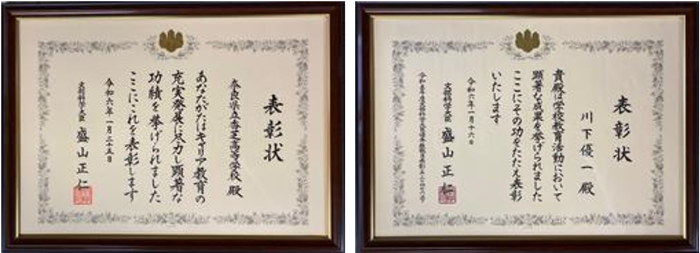 表彰状
奈良県立香芝高等学校 殿
あなたがたはキャリア教育の
充実発展に尽力し顕著な
功績を挙げられました
ここにこれを表彰します
令和六年一月二十五日
文部科学大臣 盛山正仁
表彰状
川下優一殿
貴殿は学校教育活動において
顕著な成果を挙げられました
ここにその功をたたえ表彰
いたします
令和六年一月十六日
文部科学大臣 盛山正仁